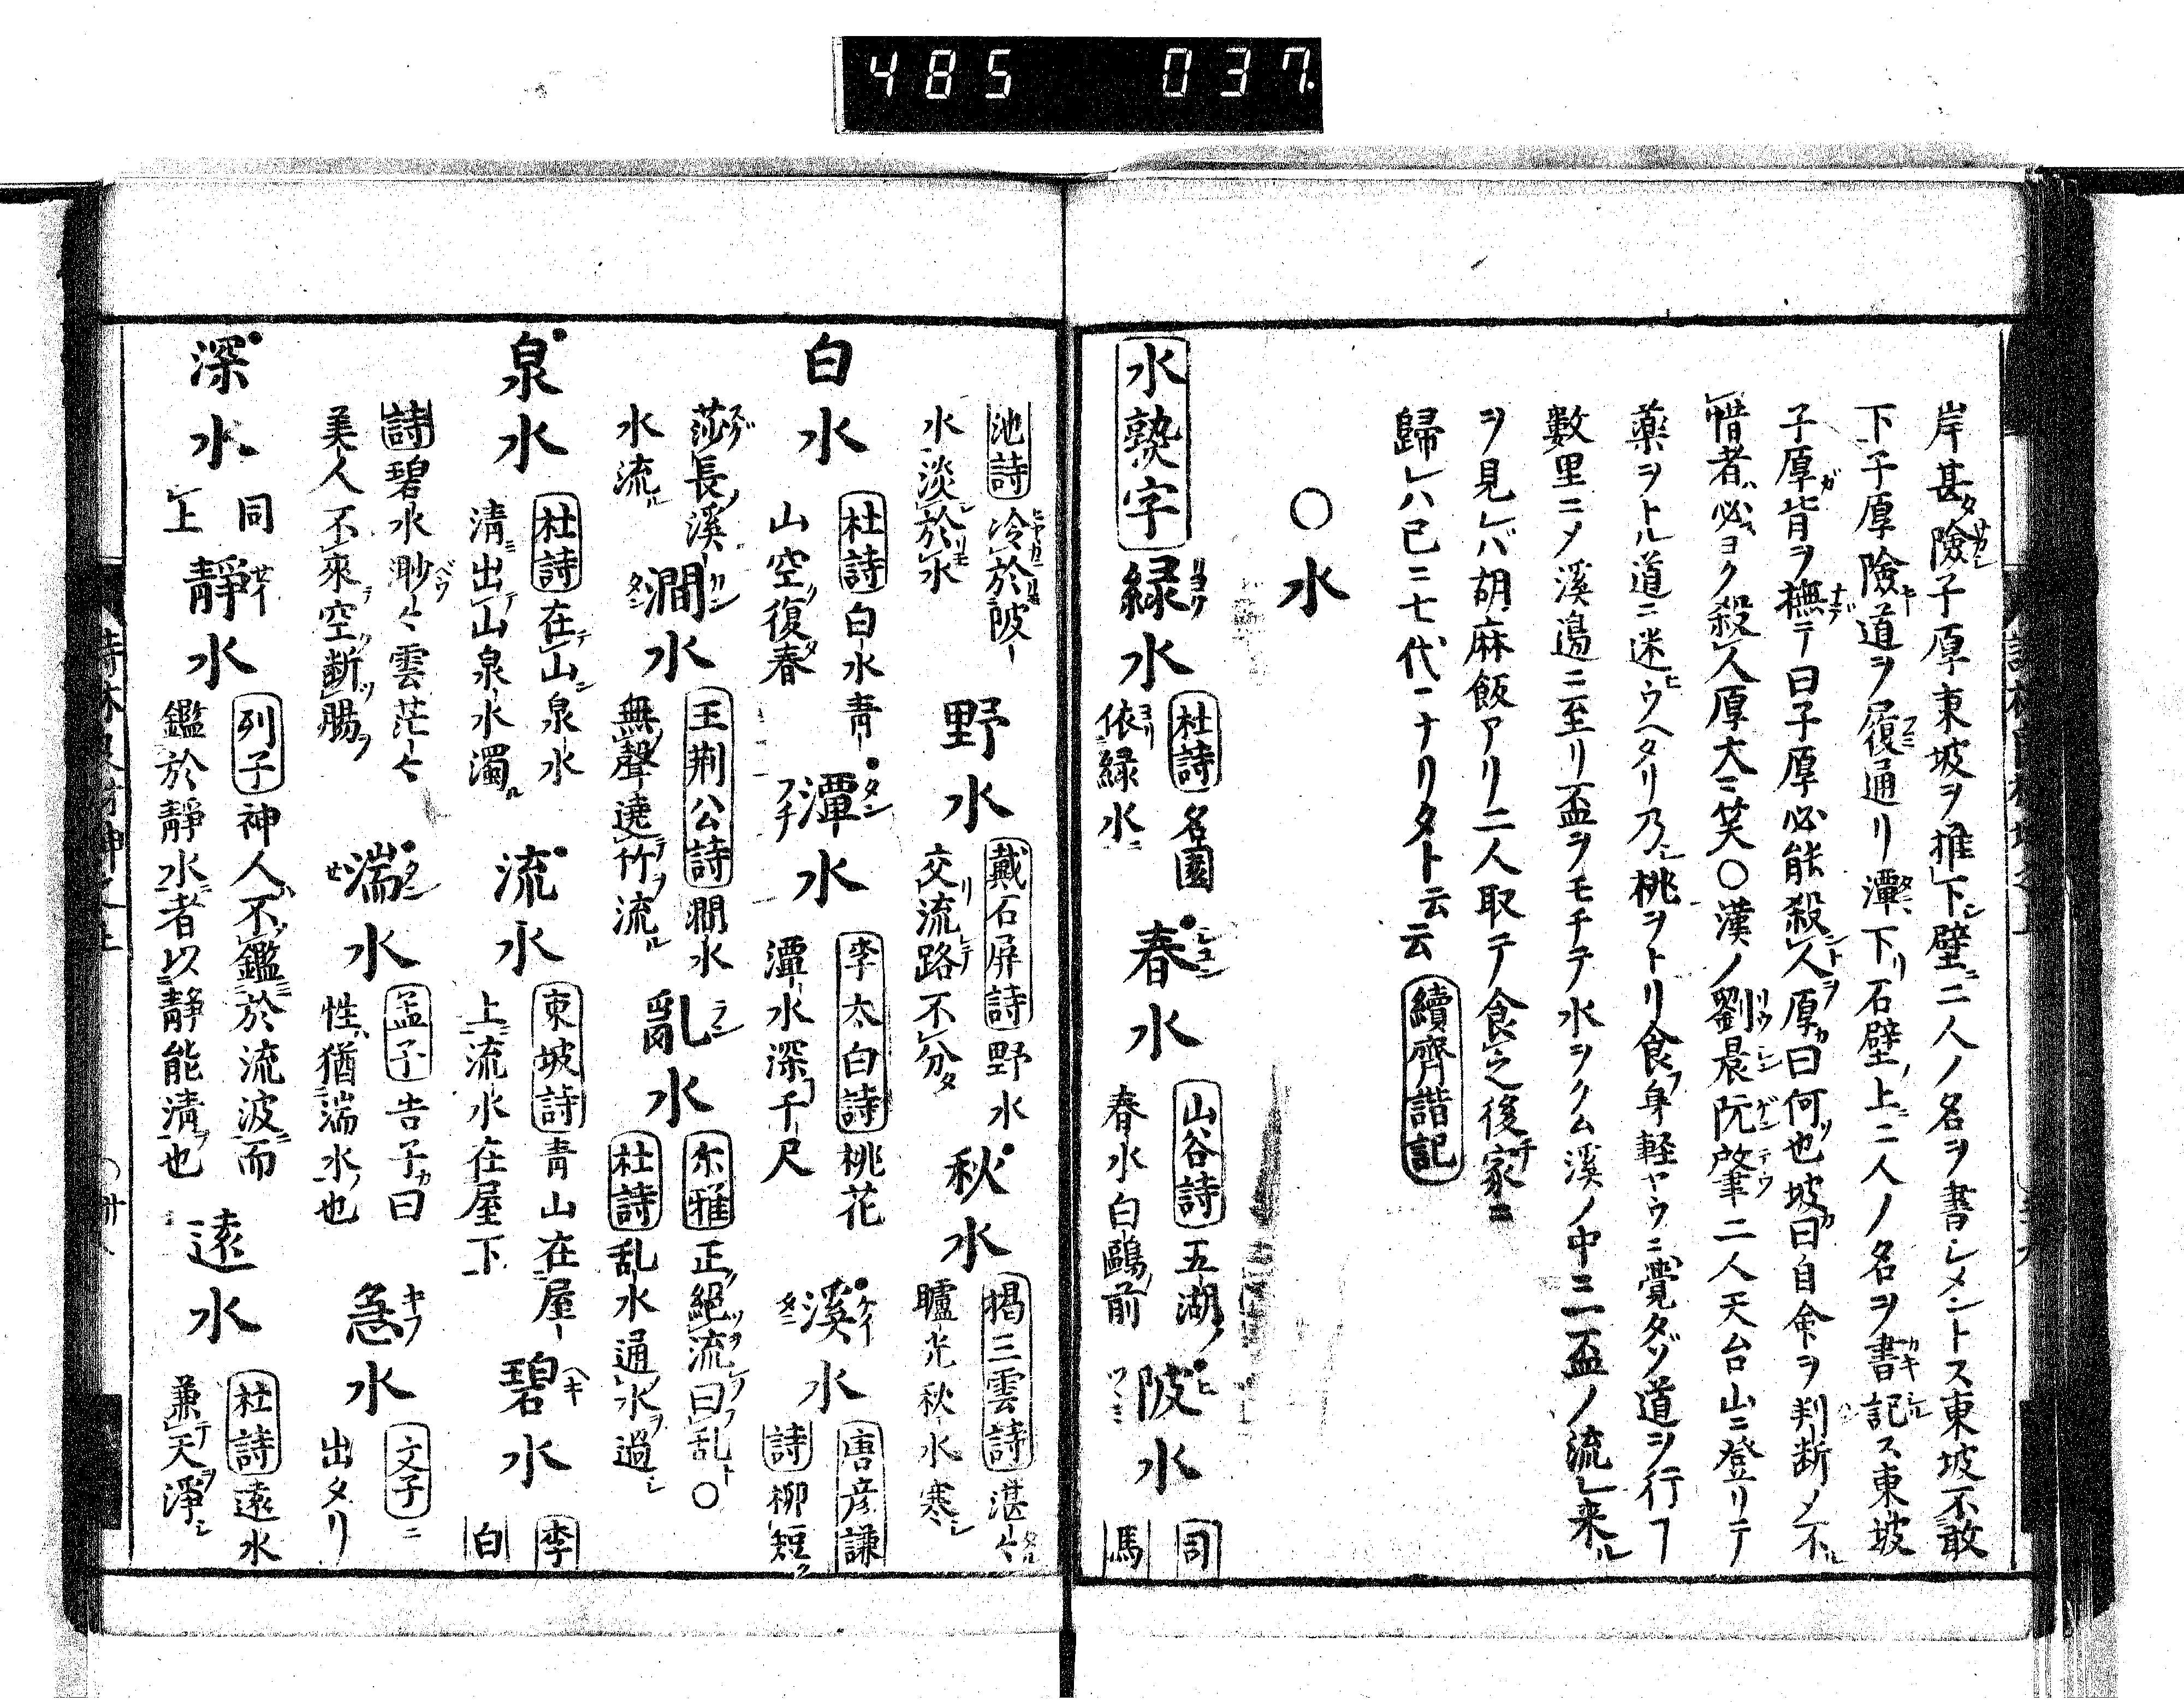 485 037
岸甚険子厚東坡ヲ推下壁ニ二人ノ名ヲ書シメントス東坡不敢
下子厚険道ヲ履通リ潭下リ石壁上ニ二人ノ名ヲ書記ス東坡
子厚背ヲ撫テ曰子厚必能殺人厚曰何也坡曰自命ヲ判断メ不
惜者必ヨク殺人厚大ニ笑〇漢ノ劉晨阮肇二人天台山ニ登リテ
薬ヲトル道ニ迷ウヘタリ乃桃ヲトリ食身軽ヤウニ覚タゾ道ヲ行フ
數里ニメ溪邉ニ至リ盃ヲモチテ水ヲクム溪ノ中ニ一盃ノ流レ来ル
ヲ見レバ胡麻飯アリ二人取テ食之後家ニ
歸レハ已ニ七代ニナリタト云云 續齊諧記
〇水
水熟字 緑水 杜詩名園
依緑水 春水 山谷詩五湖
春水白鷗前 陂水 司
馬
池詩冷於陂
水淡於水 野水 戴石屏詩野水
交流路不分 秋水 掲三雲詩湛
臚光秋水寒
白水 杜詩白水青
山空復春 潭水 李太白詩桃花
潭水深千尺 溪水 唐彦謙
詩柳短
莎長溪
水流 澗水 王荆公詩澗水
無聲遶竹流 亂水 尓雅正絶流曰乱〇
杜詩乱水通水過
泉水 杜詩在山泉水
清出山泉水濁 流水 東坡詩青山在屋
上流水在屋下 碧水 李
白
詩碧水渺々雲茫々
美人不來空断腸 湍水 孟子告子曰
性猶湍水也 急水 文子ニ
出タリ
深水 同
上 靜水 列子神人不鑑於流波而
鑑於靜水者以靜能清也 遠水 杜詩遠水
兼天淨